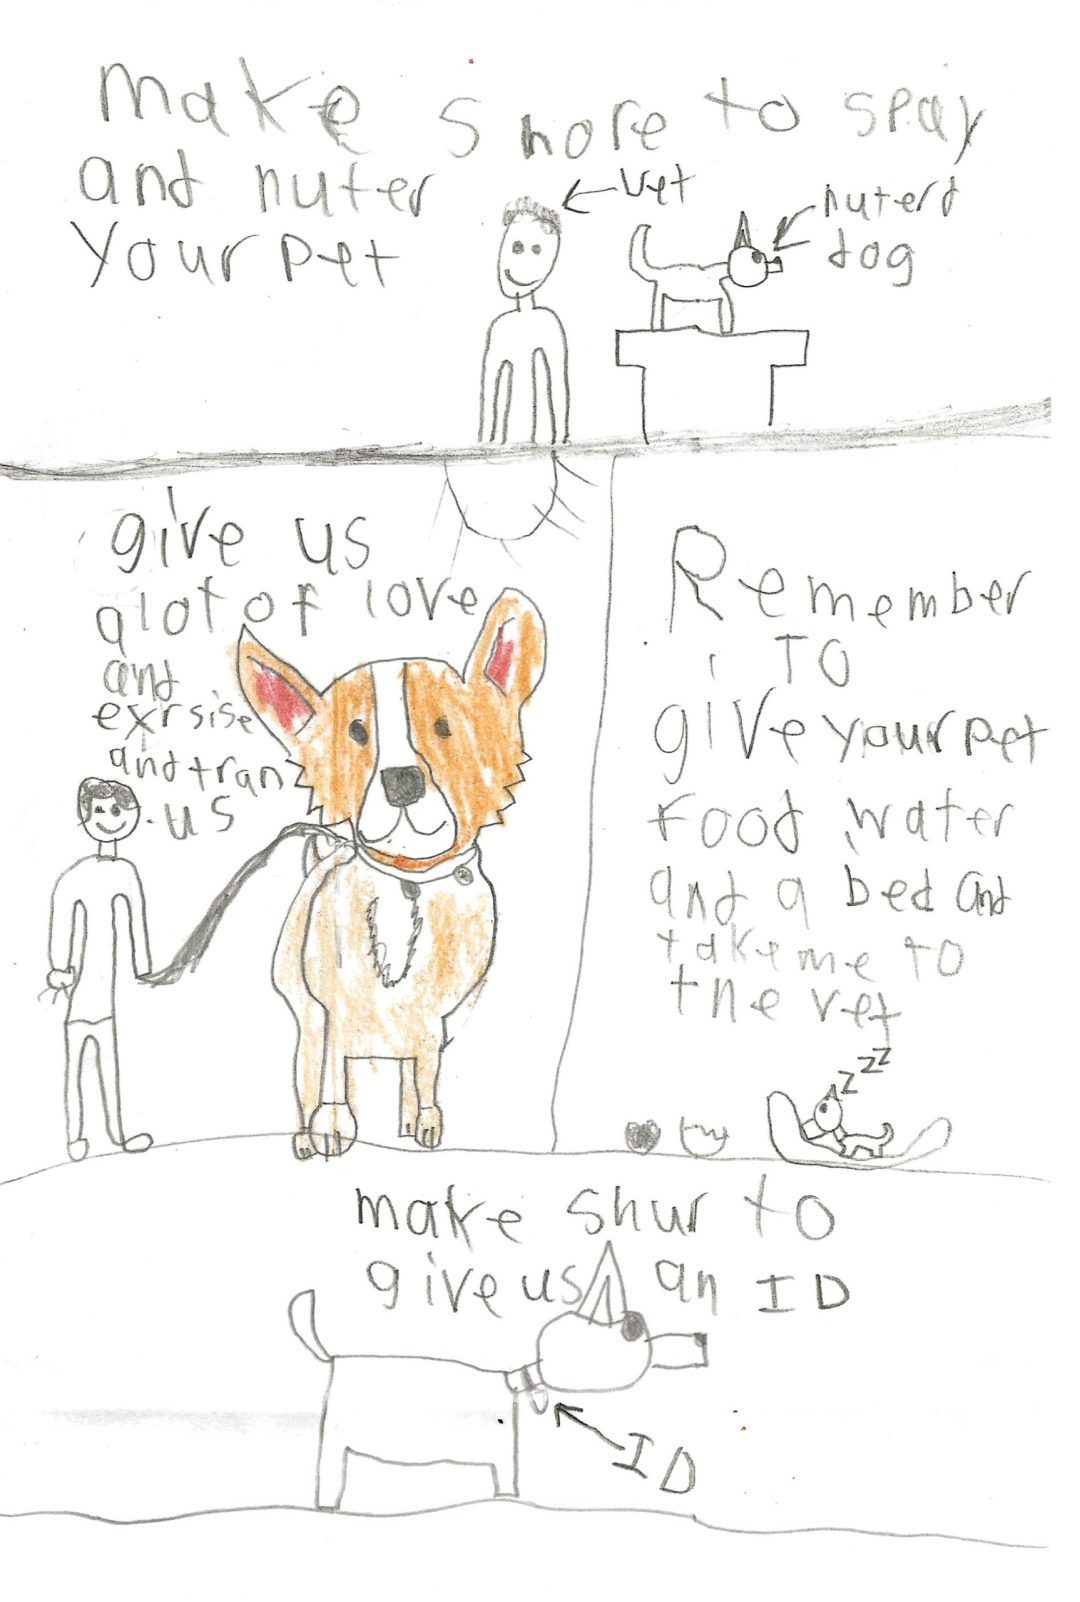 make shore to spay
and nuter
your pet
vet
nuterd
dog
give us
alot of love
and
exrsise
and tran
us
Remember
TO
give your pet
food water
and a bed and
take me to
the vet
zzz
make shur to
give us an ID
ID